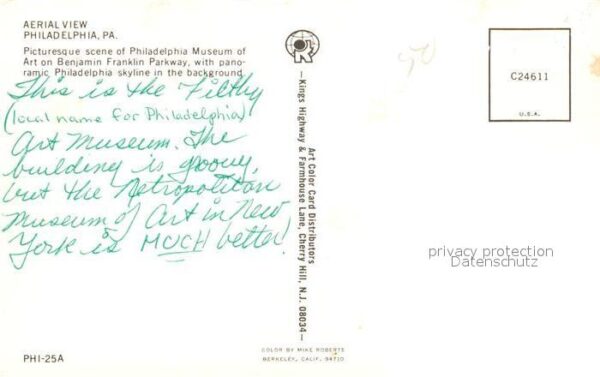 AERIAL VIEW
PHILADELPHIA, PA.
Picturesque scene of Philadelphia Museum of
Art on Benjamin Franklin Parkway, with pano-
ramic Philadelphia skyline in the background
This is the Filthy
(local name for Philadelphia)
Art Museum. The
building is groovy,
but the Metropolitan
Museum of Art in New
York is MUCH better!
PHI-25A
Art Color Card Distributors
—Kings Highway & Farmhouse Lane, Cherry Hill, N.J. 08034—
COLOR BY MIKE ROBERTS
BERKELEY, CALIF. 94710
50
C24611
U.S.A.
privacy protection
Datenschutz